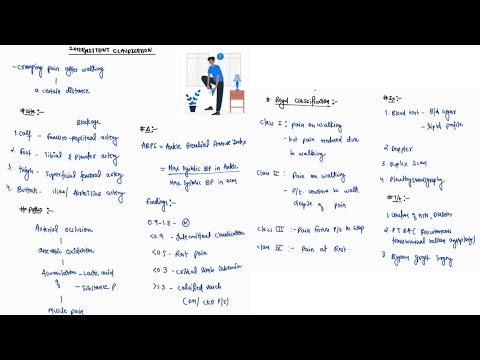 INTERMITTENT CLAUDICATION
- Cramping pain after walking
a certain distance
# Site :-
Blockage
1. Calf - Femoro-popliteal artery
2. Foot - Tibial & Plantar artery
3. Thigh - Superficial femoral artery
4. Buttock - iliac / Aortoiliac artery
# Patho :-
Arterial occlusion
anaerobic oxidation
Accumulation - Lactic acid
of - Substance P.
Muscle pain
ABPI = Ankle Brachial Pressure Index
= Max Systolic BP in Ankle
Max Systolic BP in arm
Findings :-
<0.9 - Intermittent Claudication
<0.5 - Rest pain
<0.3 - Critical limb ischemia
>1.3 - Calcified vessels
(DM / CKD P/t)
# Boyd Classification :-
Class I : pain on walking
- but pain reduced due
to walking
Class II : Pain on walking
- P/t. continue to walk
despite of pain
Class III :- Pain forces P/t to stop
Class IV :- Pain at Rest
# Ix :-
1. Blood test - Bld sugar
- Lipid profile
2. Doppler
3. Duplex Scan
4. Plethysmography
1. Control of HTN, Diabetes
2. PTBA (Percutaneous
transluminal balloon angioplasty)
3. Bypass graft surgery